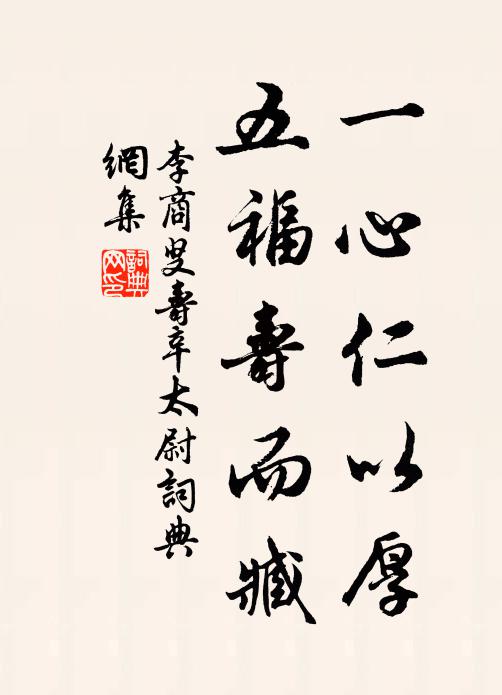 一心仁以厚
五福壽而臧
李商叟壽辛太尉詞典
網集
詞典網印